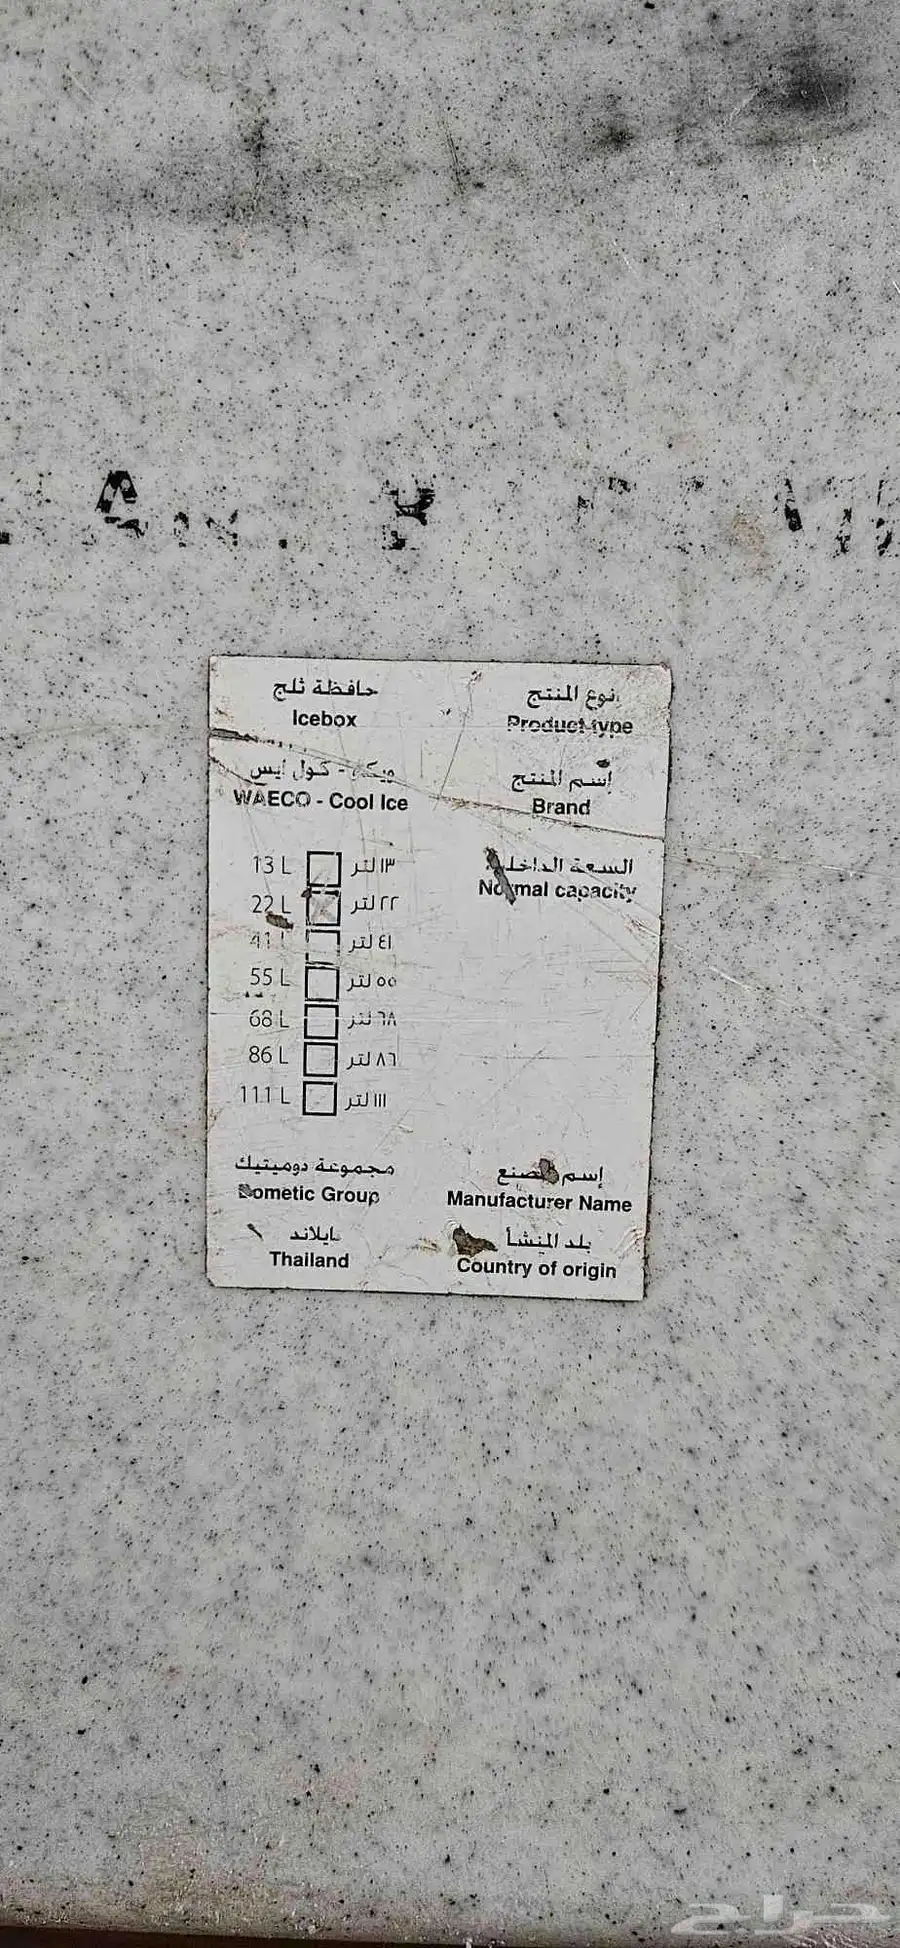 نوع المنتج
حافظة ثلج
Product type
Icebox
إسم المنتج
ويكو - كول ايس
Brand
WAECO - Cool Ice
السعة الداخلية
Normal capacity
13 L ١٣ لتر
22 L ٢٢ لتر
41 L ٤١ لتر
55 L ٥٥ لتر
68 L ٦٨ لتر
86 L ٨٦ لتر
111 L ١١١ لتر
إسم المصنع
مجموعة دوميتيك
Manufacturer Name
Dometic Group
بلد المنشأ
تايلاند
Country of origin
Thailand
حراج